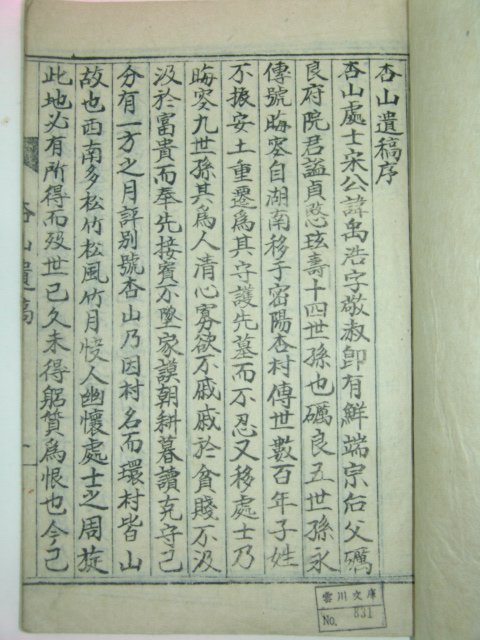 杏山遺稿序
杏山處士宋公諱禹浩字敬叔卽有鮮端宗后父礪
良府院君謚貞愍玹壽十四世孫也礪良五世孫永
傳號晦窓自湖南移于密陽杏村傳世數百年子姓
不振安土重遷爲其守護先墓而不忍又移處士乃
晦窓九世孫其爲人清心寡欲不戚戚於貧賤不汲
汲於富貴而奉先接賓不墜家謨朝耕暮讀克守己
分有一方之月評別號杏山乃因村名而環村皆山
故也西南多松竹松風竹月惱人幽懷處士之周旋
此地必有所得而歿世已久未得躬質爲恨也今己
杏山遺稿
一
雲川文庫
No. 831